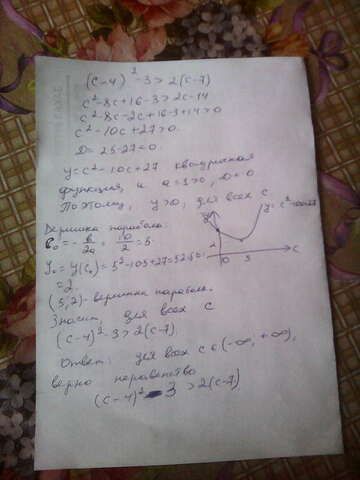 (c-4)² -3>2(c-7)
c²-8c+16-3>2c-14
c²-8c-2c+16-3+14>0
c²-10c+27>0
D=25-27<0
y=c²-10c+27 квадратная
функция, и a=1>0, D<0
Поэтому, y>0, для всех c
Вершина параболы
= 10/2 = 5
y₀=y(c₀)=5²-10·5+27=
=2.
(5,2)-вершина параболы.
Значит, для всех c
(c-4)²-3>2(c-7)
y
2
0 5 c
Ответ: для всех c∈(-∞, +∞),
верно неравенство
(c-4)²-3>2(c-7)